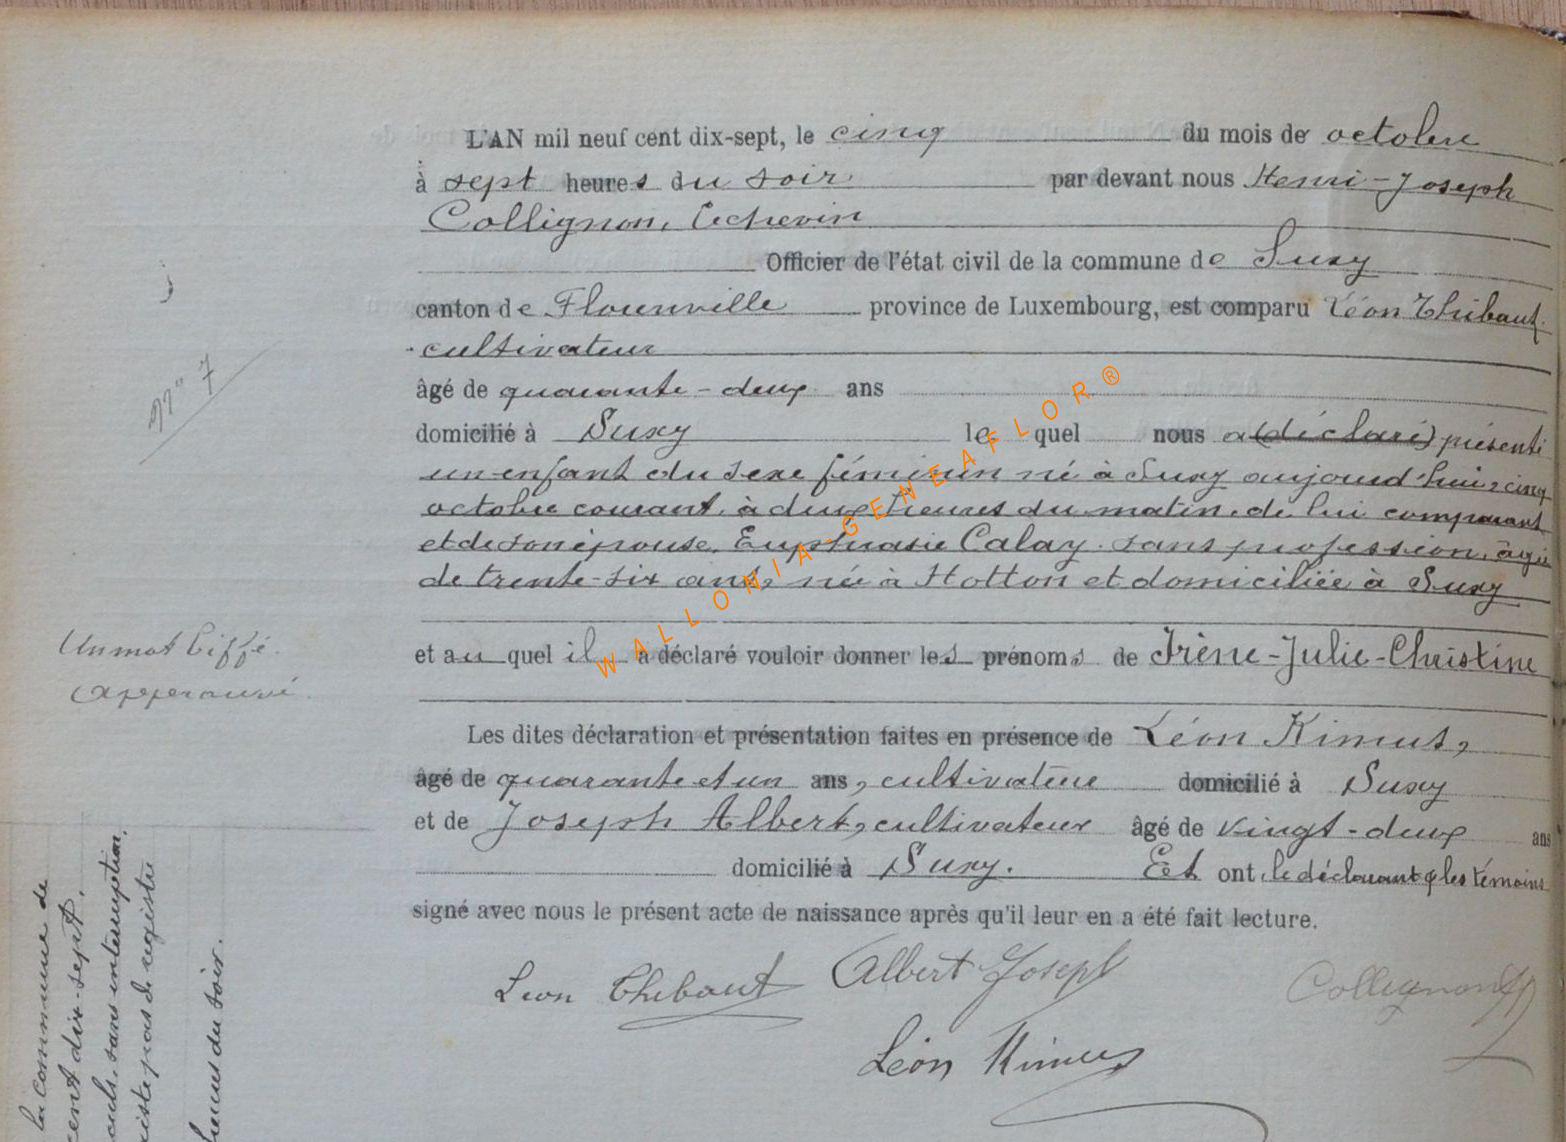 L'AN mil neuf cent dix-sept, le cinq du mois de octobre
à sept heures du soir par devant nous Henri-Joseph
Collignon, Echevin
Officier de l'état civil de la commune de Suxy
canton de Florenville province de Luxembourg, est comparu Léon Thibaut
cultivateur
âgé de quarante-deux ans
domicilié à Suxy lequel nous a (déclaré) présenté
un enfant du sexe féminin né à Suxy aujourd'hui, cinq
octobre courant, à deux heures du matin, de lui comparant
et de son épouse, Euphrasie Calay, sans profession, âgée
de trente-six ans, née à Hotton et domiciliée à Suxy
et au quel il a déclaré vouloir donner les prénoms de Irène-Julie-Christine
Les dites déclaration et présentation faites en présence de Léon Kimus,
âgé de quarante et un ans, cultivateur domicilié à Suxy
et de Joseph Albert, cultivateur âgé de vingt-deux ans
domicilié à Suxy. Et ont, le déclarant & les témoins
signé avec nous le présent acte de naissance après qu'il leur en a été fait lecture.
Leon Thibaut
Albert Joseph
Collignon
Léon Kimus
N° 7
Un mot biffé.
Approuvé.
la commune de
cent dix-sept.
sans interruption.
pas de registre
heures du soir.
WALLONIA-GENEAFLOR®